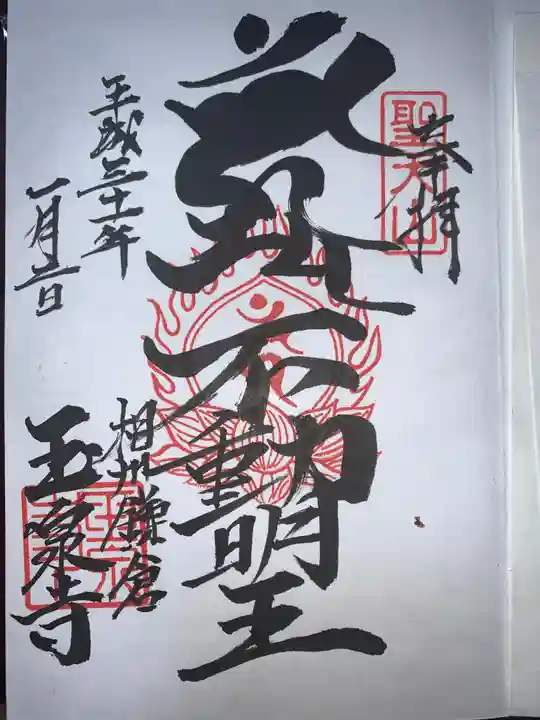 奉拝
聖天山
不動明王
相州鎌倉
玉泉寺
平成三十一年
一月三日